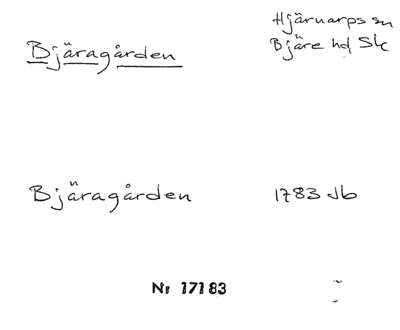 Hjärnarps sn
Bjäragården Bjäre hd Sk
Bjäragården 1783 Jb
Nr 17183